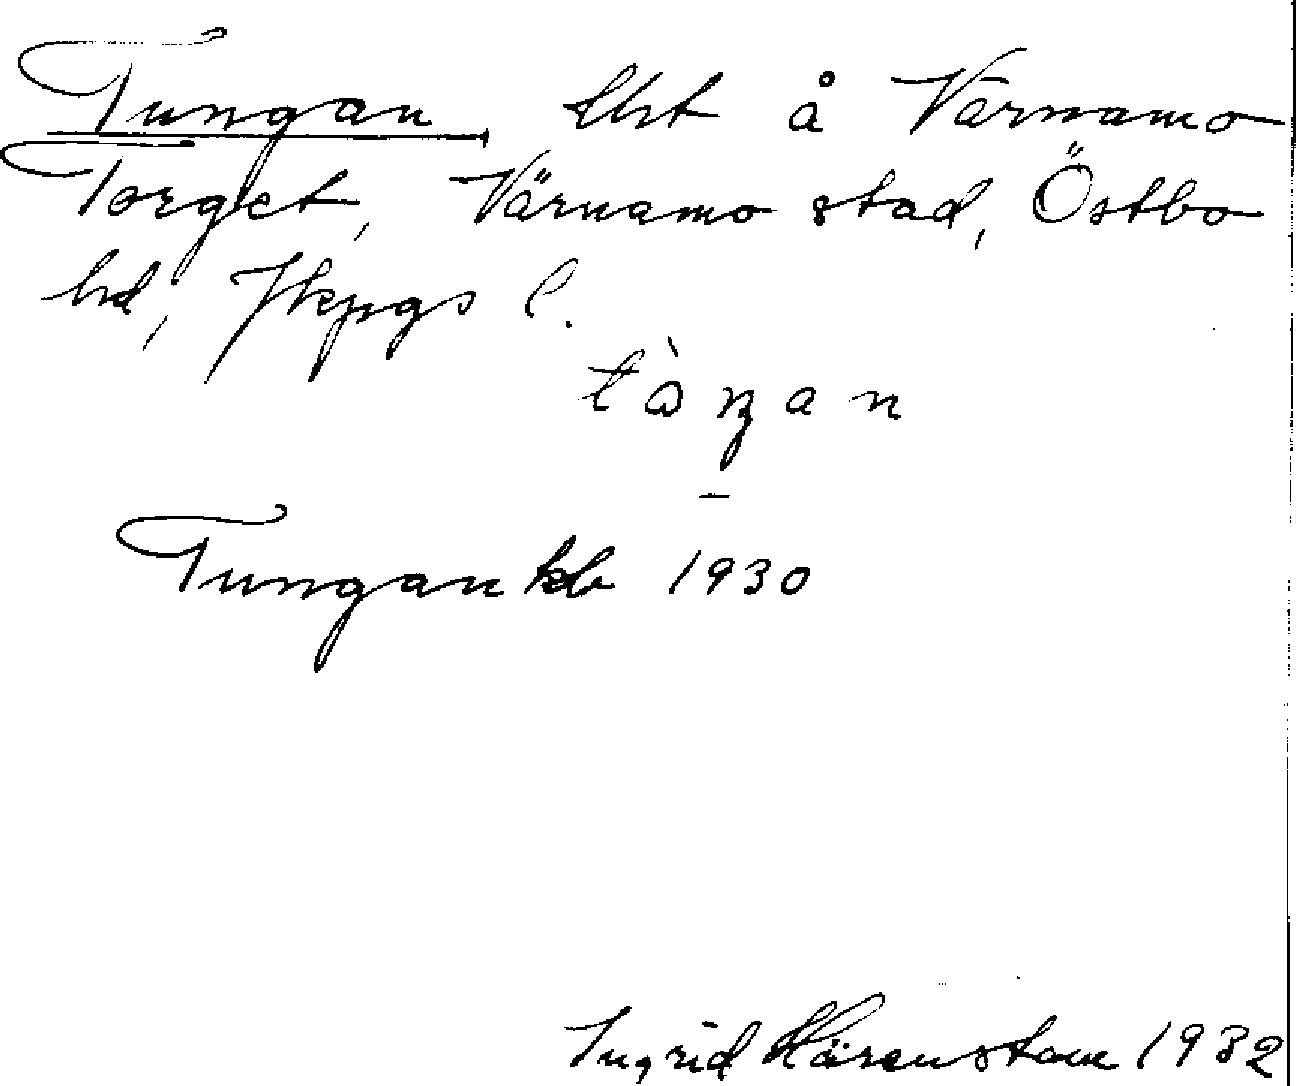 Tungan, lht å Värnamo
Torget, Värnamo stad, Östbo
hd, Jkpgs l.
tὼŋan
Tungan kb 1930
Ingrid Härenstam 1932